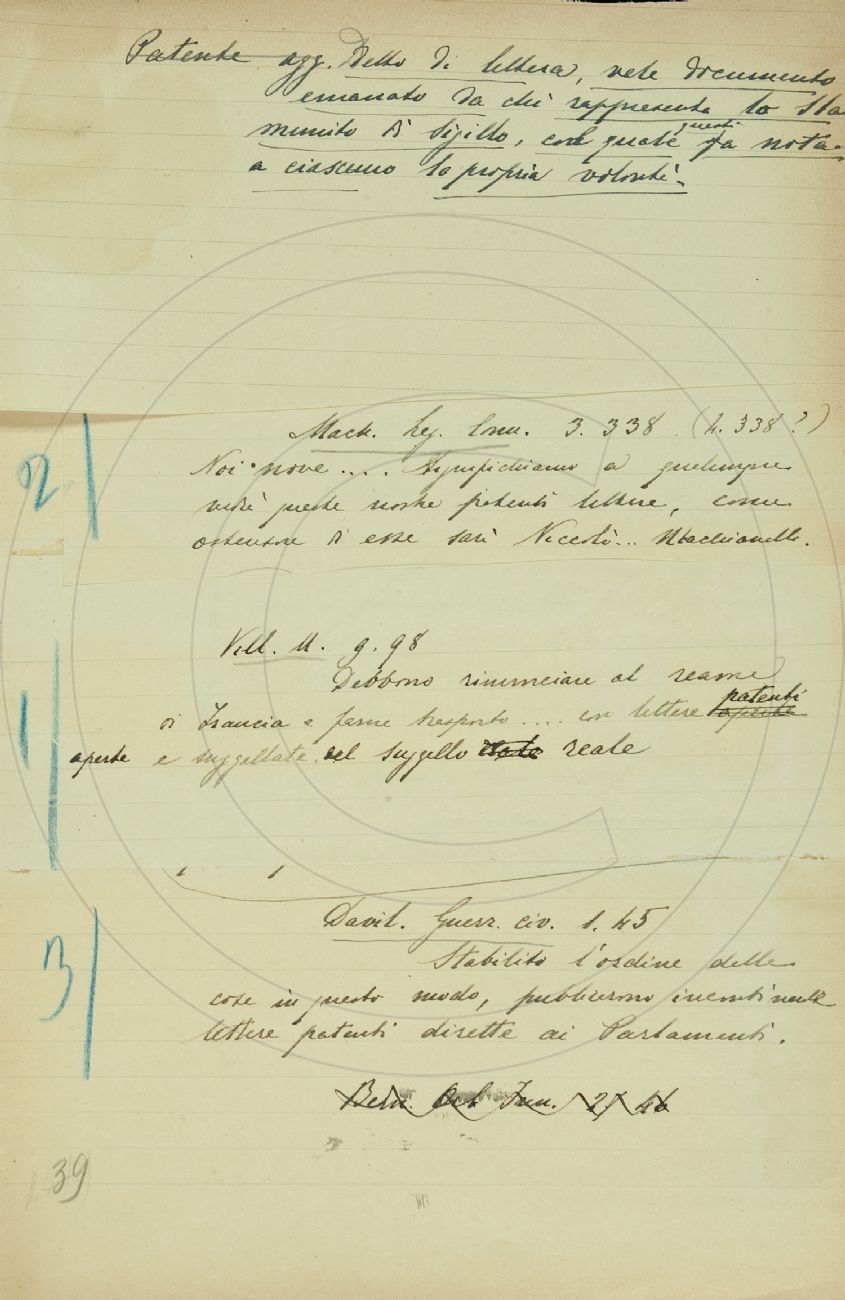 Patente agg. Detto di lettera, vale documento
emanato da chi rappresenta lo Sta-
munito di sigillo, col quale questi fa nota-
a ciascuno la propria volontà.
Mach. Leg. Comm. 3. 338. (4. 338?)
2
Noi nove .... significhiamo a qualunque
vedrà queste nostre patenti lettere, come
ostensore di esse sarà Niccolò... Machiavelli.
Vill. M. 9. 98
1
Debbono rinunciare al reame
di Francia e farne trasporto .... con lettere patenti aperte
aperte e suggellate del suggello reale
Davil. Guerr. civ. 1. 45
3
Stabilito l'ordine delle
cose in questo modo, pubblicarono incontinente
lettere patenti dirette ai Parlamenti.
Bern. Orl. Inn. 21 46
39